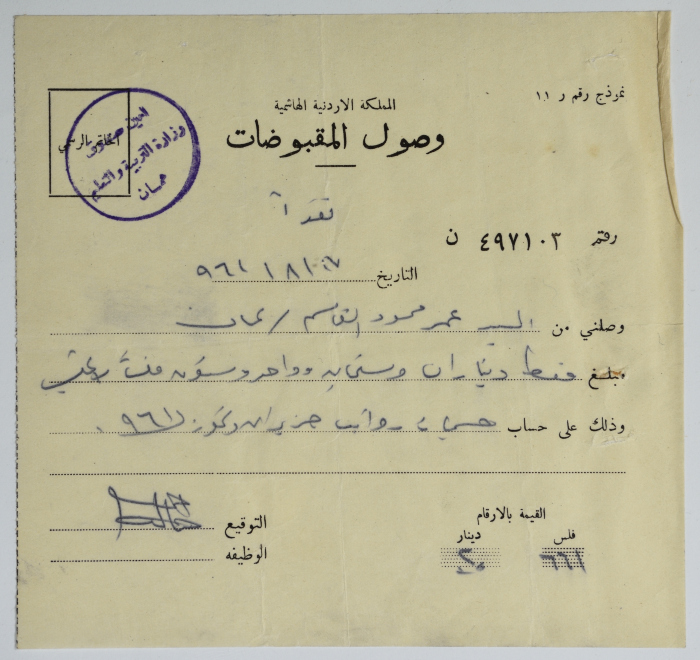 نموذج رقم ر ١١
المملكة الاردنية الهاشمية
وصول المقبوضات
الخاتم الرسمي
امين صندوق
وزارة التربية والتعليم
عمان
نقداً
رقم ٤٩٧١٠٣ ن
التاريخ ٩٦١/٨/
وصلني من السيد عمر محمود القاسم / عمان
مبلغ فقط ديناران وستمائة وواحد وستون فلساً لا غير
وذلك على حساب رواتب حزيران وتموز ٩٦١.
القيمة بالارقام
فلس دينار
٦٦١ ٢
التوقيع
الوظيفه